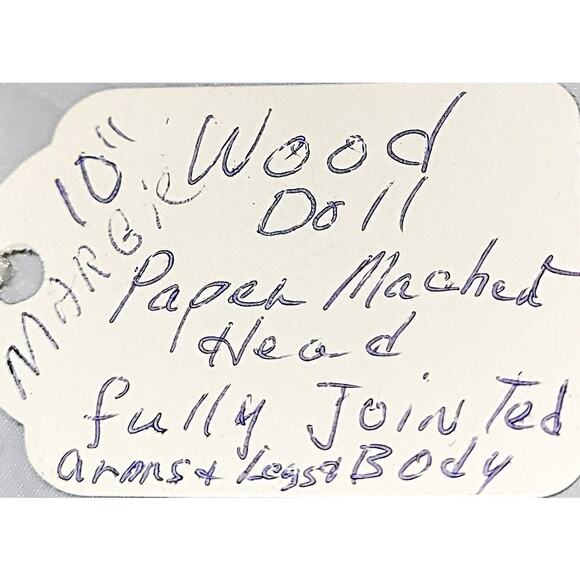 10" Wood
MARGie
Doll
Paper Mached
Head
fully JOINTed
arms & Legs & BODy